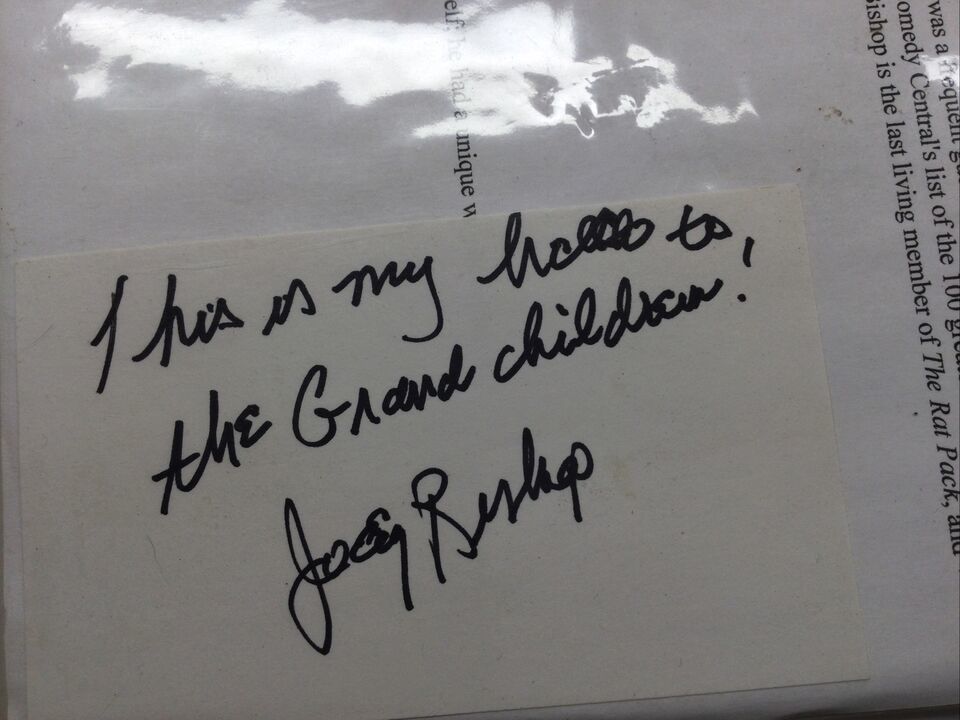 This is my hello to,
the Grand children!
Joey Bishop
elf; he had a unique w
was a frequent
omedy Central's list of the 100
Bishop is the last living member of The Rat Pack, and